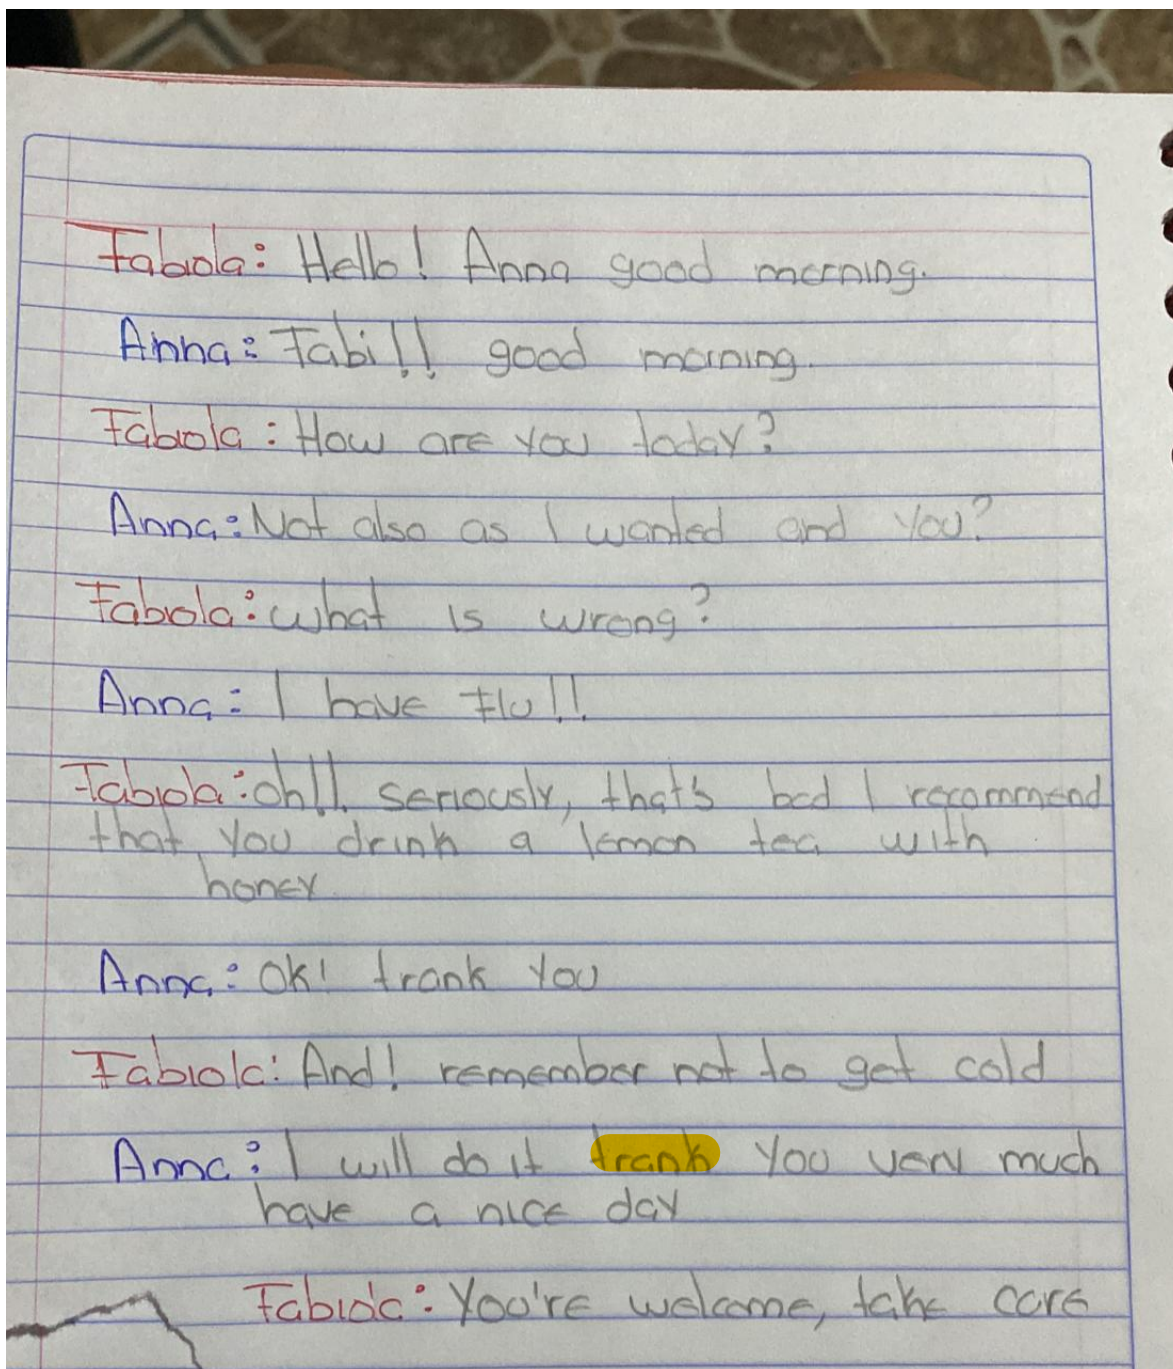 Fabiola: Hello! Anna good morning.
Anna: Fabi!! good morning.
Fabiola: How are you today?
Anna: Not also as I wanted and you?
Fabiola: what is wrong?
Anna: I have flu!!
Fabiola: oh!! seriously, that's bad I recommend
that you drink a lemon tea with
honey
Anna: OK! trank you
Fabiola: And! remember not to get cold
Anna: I will do it trank you very much
have a nice day
Fabiola: You're welcome, take care